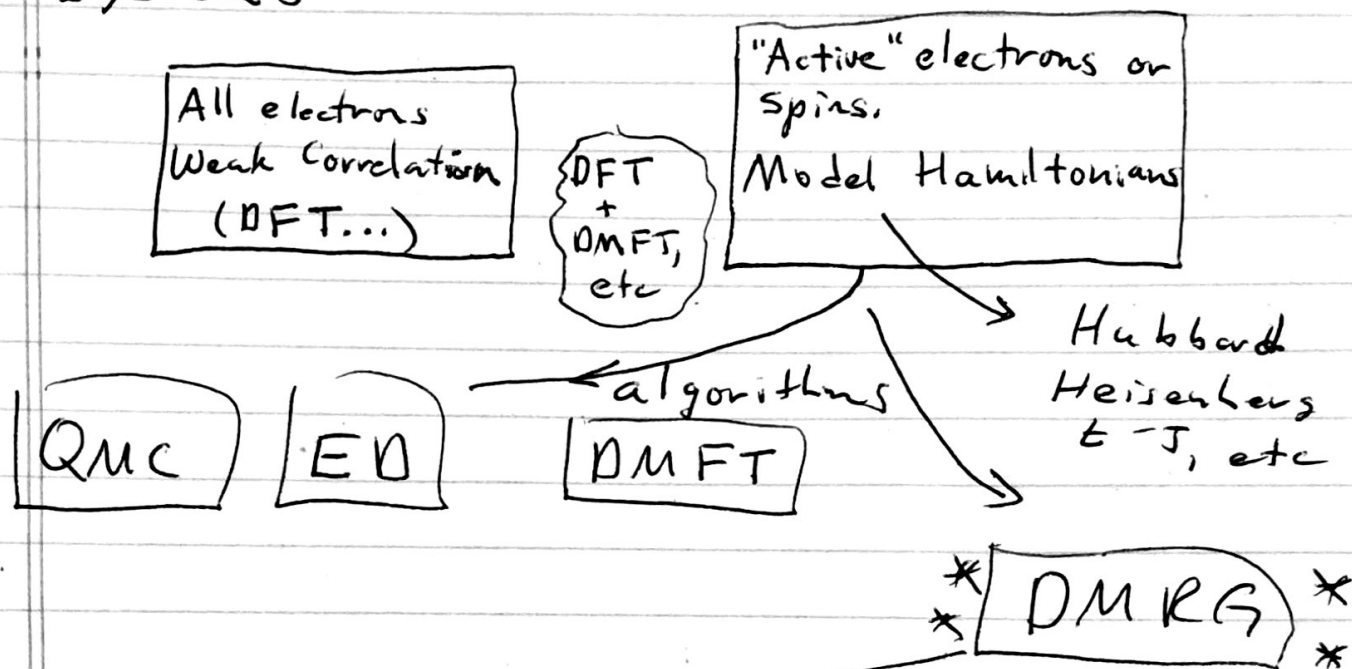 All electrons
Weak Correlation
(DFT...)
DFT
+
DMFT,
etc
"Active" electrons or
spins.
Model Hamiltonians
Hubbard
Heisenberg
t-J, etc
algorithms
QMC
ED
DMFT
* DMRG *
* *